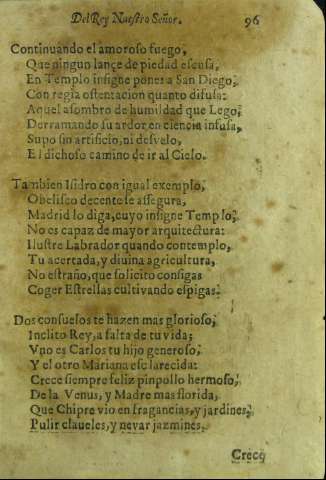 Del Rey Nuestro Señor. 96
Continuando el amoroso fuego,
Que ningun lançe de piedad escusa,
En Templo insigne pone a San Diego,
Con regia ostentacion quanto difusa:
Aquel assombro de humildad que Lego,
Derramando su ardor en ciencia infusa,
Supo sin artificio, ni desvelo,
El dichoso camino de ir al Cielo.
Tambien Isidro con igual exemplo,
Obelisco decente le assegura,
Madrid lo diga, cuyo insigne Templo,
No es capaz de mayor arquitectura:
Ilustre Labrador quando contemplo,
Tu acertada, y diuina agricultura,
No estraño, que solicito consigas
Coger Estrellas cultivando espigas.
Dos consuelos te hazen mas glorioso,
Inclito Rey, a falta de tu vida;
Vno es Carlos tu hijo generoso,
Y el otro Mariana esclarecida:
Crece siempre feliz pinpollo hermoso,
De la Venus, y Madre mas florida,
Que Chipre vio en fragancias, y jardines,
Pulir claueles, y nevar jazmines.
Crece